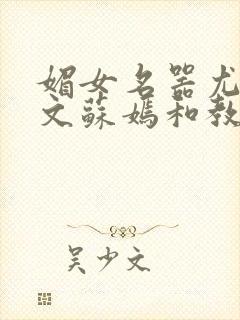 媚女名器尤
文蘇媽和教
吴少文